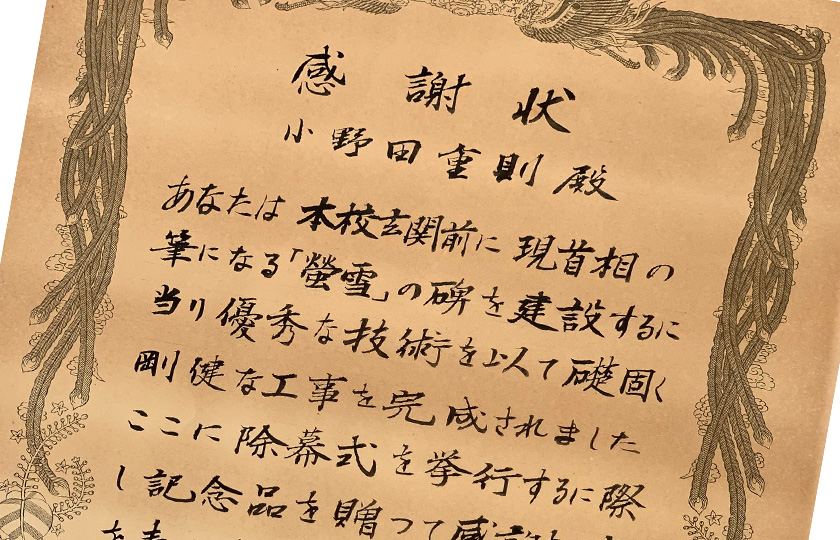 感謝状
小野田重則殿
あなたは本校玄関前に現首相の
筆になる「螢雪」の碑を建設するに
当り優秀な技術を以て礎固く
剛健な工事を完成されました
ここに除幕式を挙行するに際
し記念品を贈って感謝
を表